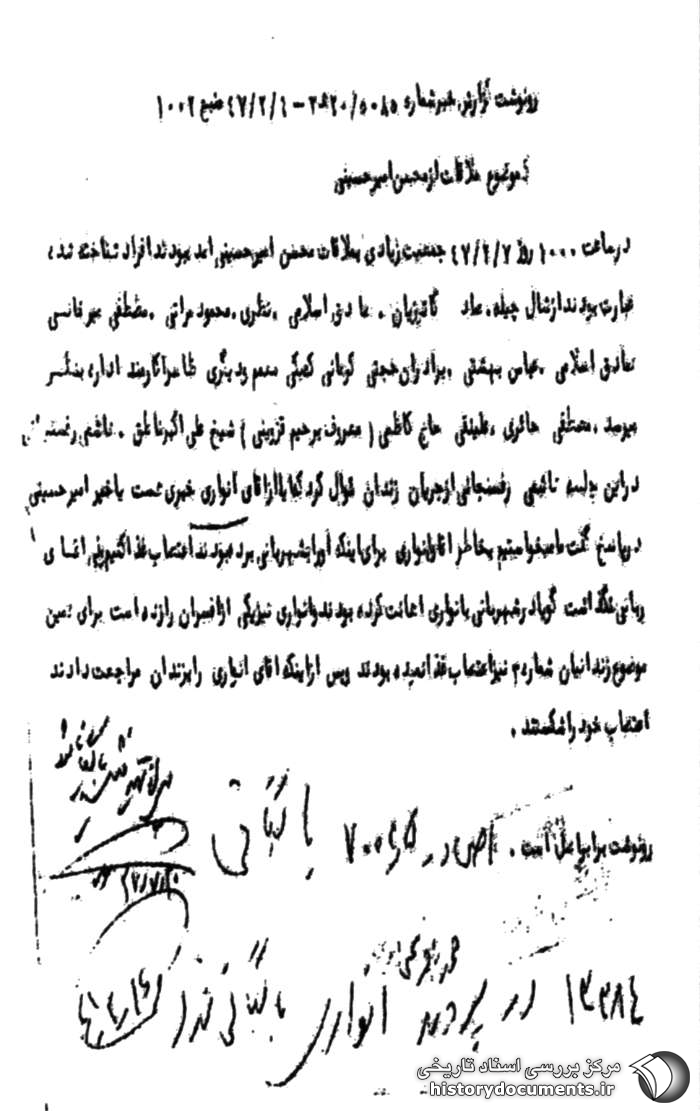 رونوشت گزارش خبر شماره ۲۰/۵۰۸۵ – ۴۷/۲/۴ منبع ۱۰۰۲
موضوع ملاقات از محسن امیرحسینی
در ساعت ۱۰۰۰ روز ۴۷/۲/۷ جمعیت زیادی بملاقات محسن امیرحسینی آمده بودند افراد شناخته شده
عبارت بودند از شال چیله، عماد گاتوزیان . صادق اسلامی . نظری . محمود مراتی . مصطفی میرخانسی
صادق اسلامی . عباس بهشتی . برادران حجتی کرمانی یکی معمم و دیگری ظاهرا کارمند اداره بنظر
میرسد . مصطفی حائری . علینقی حاج کاظمی ( معروف برحیم قزوینی ) شیخ علی اکبر ناطق . هاشمی رفسنجانی
در این جلسه رفسنجانی از جریان زندان سئوال کرد که آیا از آقای انواری خبری هست یا خیر امیرحسینی
در پاسخ گفت ما میخواستیم بخاطر آقای انواری برای اینکه او را بشهربانی برده بودند اعتصاب غذا کنیم ولی آقای
ربانی نگذاشت گویا در شهربانی بانواری اهانت کرده بودند و انواری نیز یکی از افسران را زده است برای همین
موضوع زندانیان شماره ۳ نیز اعتصاب غذا نموده بودند و پس از اینکه آقای انواری را بزندان مراجعت دادند
اعتصاب خود را شکستند .
رونوشت برابر اصل است . اصل در ۷۰۰۶۵ بایگانی
۴۷/۷/۲۰
۱۳۲۸۴ در پرونده انواری بایگانی شود
مرکز بررسی اسناد تاریخی
historydocuments.ir